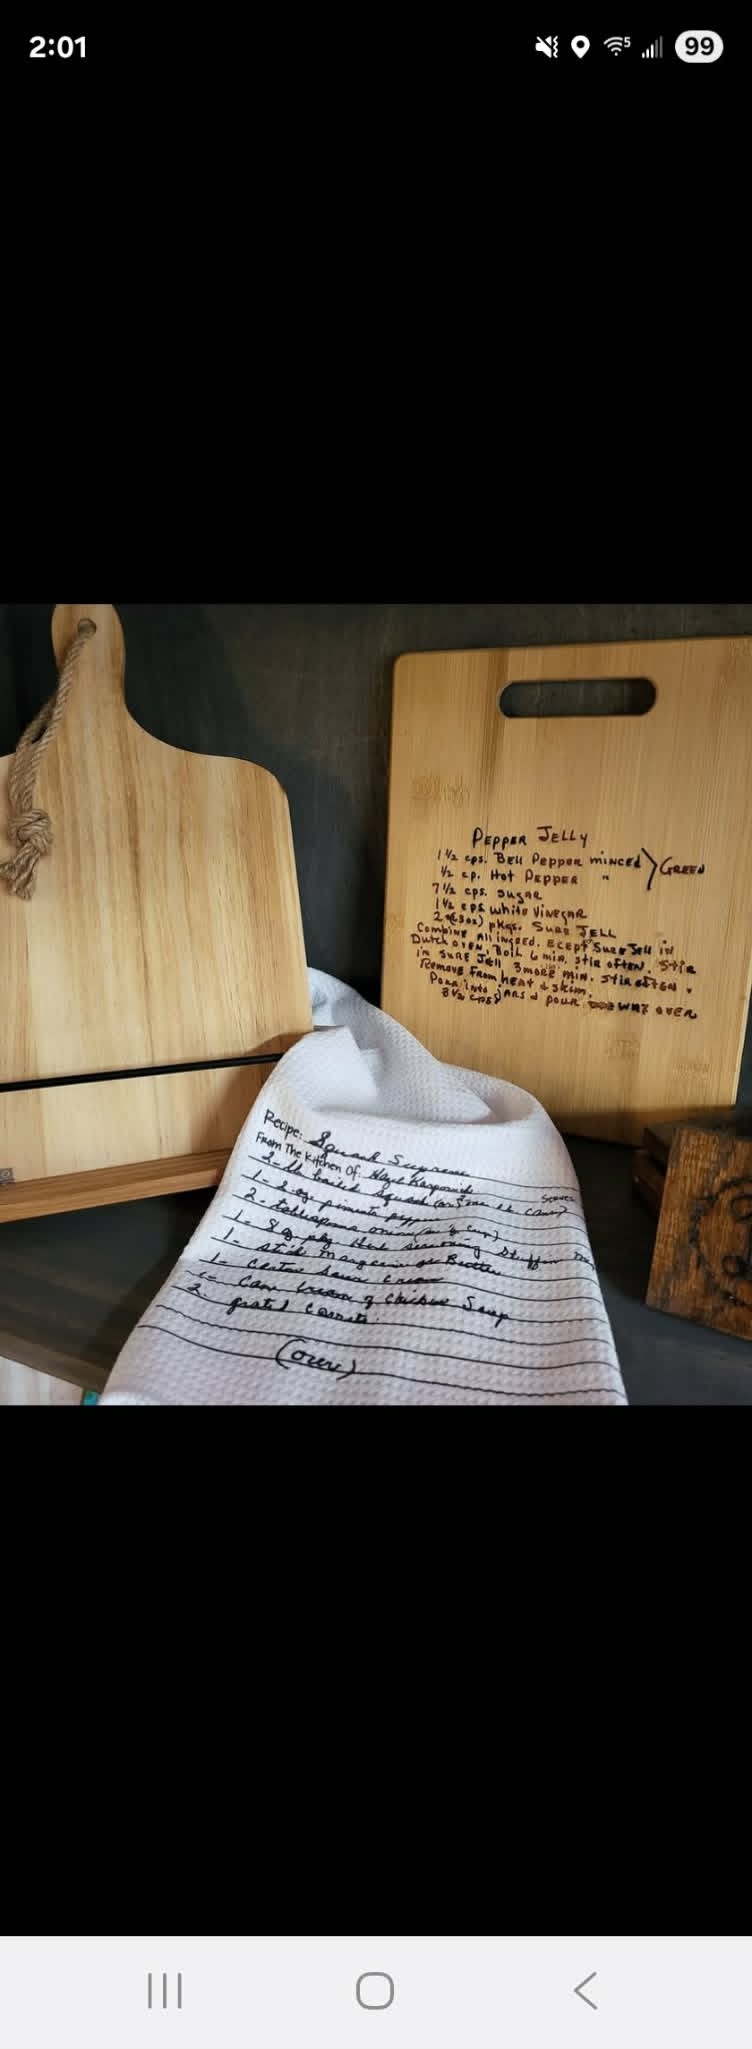 2:01
99
PEPPER JELLY
1 1/2 cps. Bell Pepper minced > GREEN
1/2 cp. Hot PEPPER "
7 1/2 cps. sugar
1 1/2 cps white Vinegar
2 (3oz) pkgs. SURE JELL
Combine All ingred. Ecept Sure Jell in
Dutch oven, Boil 6 min. stir often. Stir
in SURE Jell 3 more min. stir often.
Remove from heat & skim.
Pour into jars & pour wax over
8 1/2 cps
Recipe: Squash Supreme
From The Kitchen Of: Hazel
Serves
2 - lb boiled squash (or
1 - 2 oz pimento pepper
2 - tablespoons onion (or 1/2 cup)
1 - 8 oz pkg Herb seasoning Stuffin
1 - stick Margarine or Butter
1 - carton Sour Cream
1 - Can Cream of Chicken Soup
2 grated Carrots.
(over)